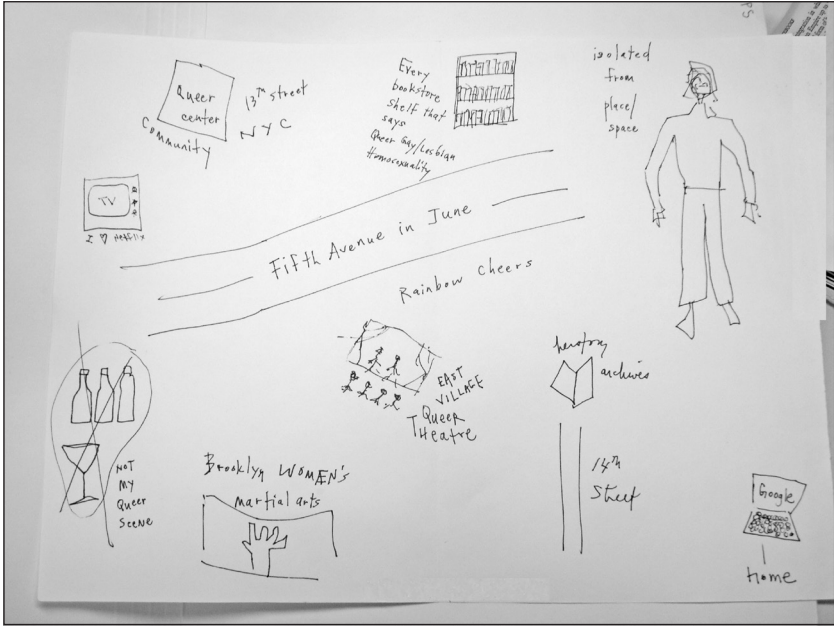 Queer
center
Community
13th street
NYC
Every
bookstore
shelf that
says
Queer Gay/Lesbian
Homosexuality
isolated
from
place/
space
TV
I ♡ Netflix
Fifth Avenue in June
Rainbow Cheers
EAST
VILLAGE
QUEER
THEatre
herstory
archives
14th
Street
NOT
MY
Queer
SCENE
Brooklyn WOMÆN's
martial arts
Google
Home